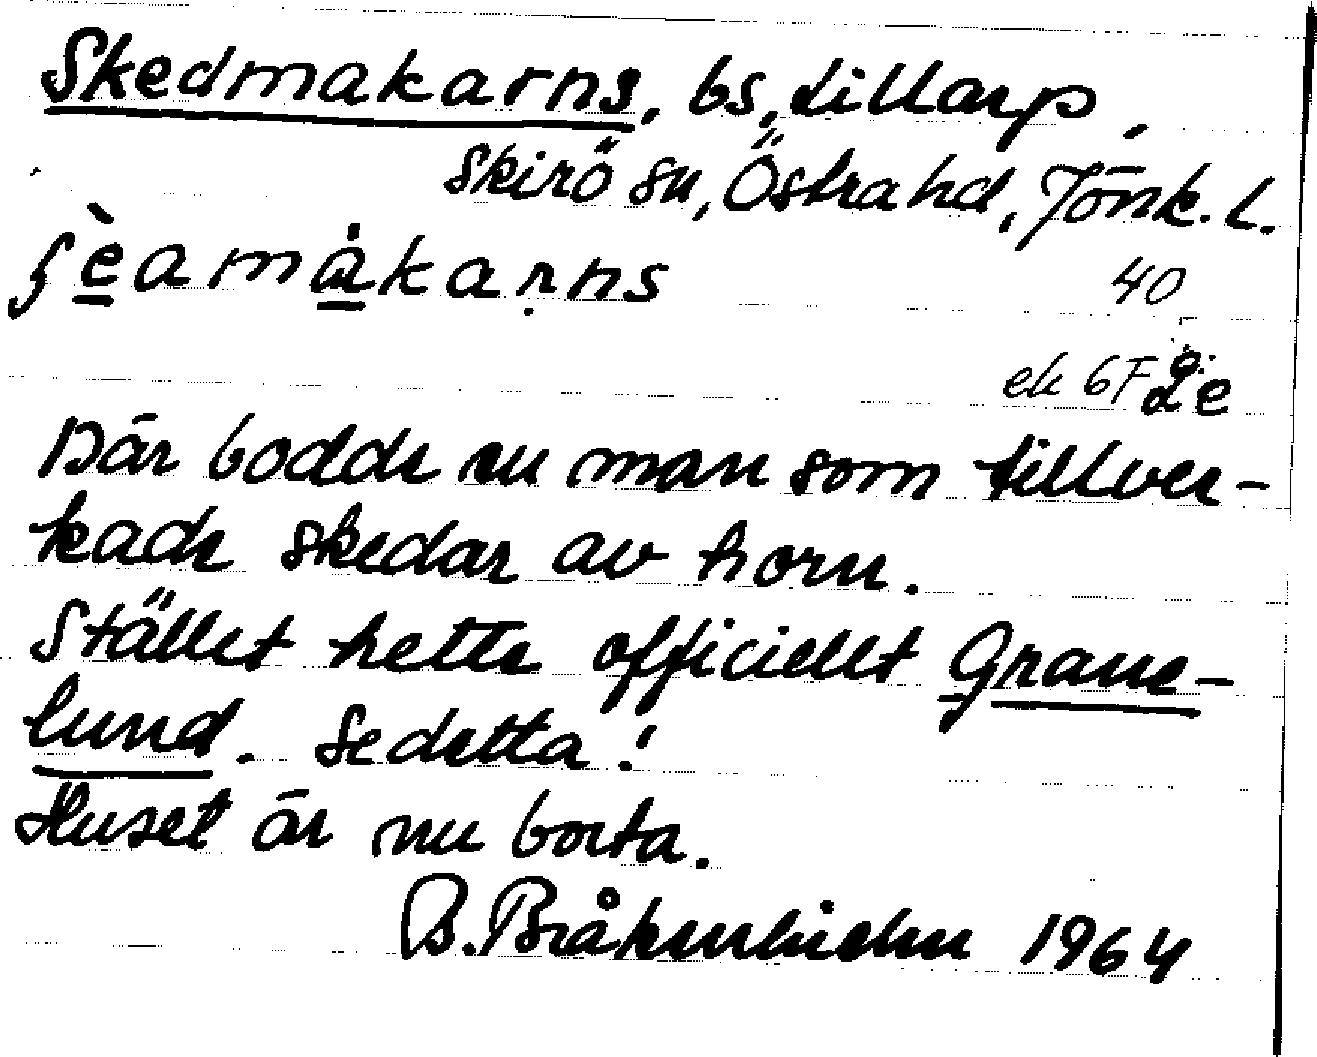 Skedmakarns, bs, Lillarp,
Skirö sn, Östra hd, Jönk. L.
ʃèamåkaṛns
40
ek 6F 2e
Där bodde en man som tillver-
kade skedar av horn.
Stället hette officiellt Grane-
lund. Se detta!
Huset är nu borta.
B. Bråkenhielm 1964